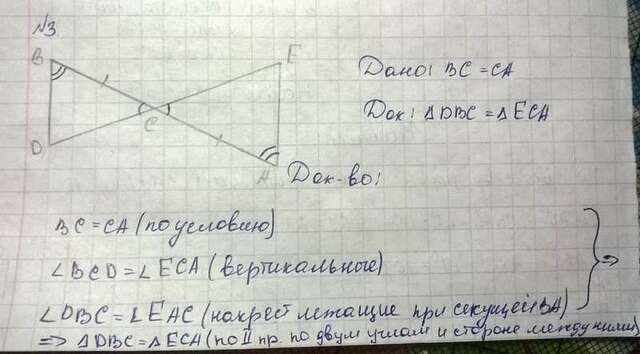 №3
B
E
Дано: BC = CA
Док: ΔDBC = ΔECA
C
D
A
Док-во:
BC = CA (по условию)
∠BCD = ∠ECA (вертикальные)
∠DBC = ∠EAC (накрест лежащие при секущей BA) ⇒
⇒ ΔDBC = ΔECA (по II пр. по двум углам и стороне между ними)